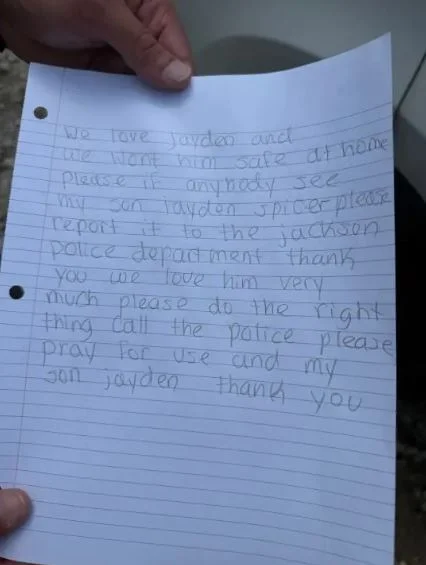 We love jayden and
we want him safe at home
please if anybody see
my son jayden spicer please
report it to the jackson
police department thank
you we love him very
much please do the right
thing call the police please
pray for use and my
son jayden thank you